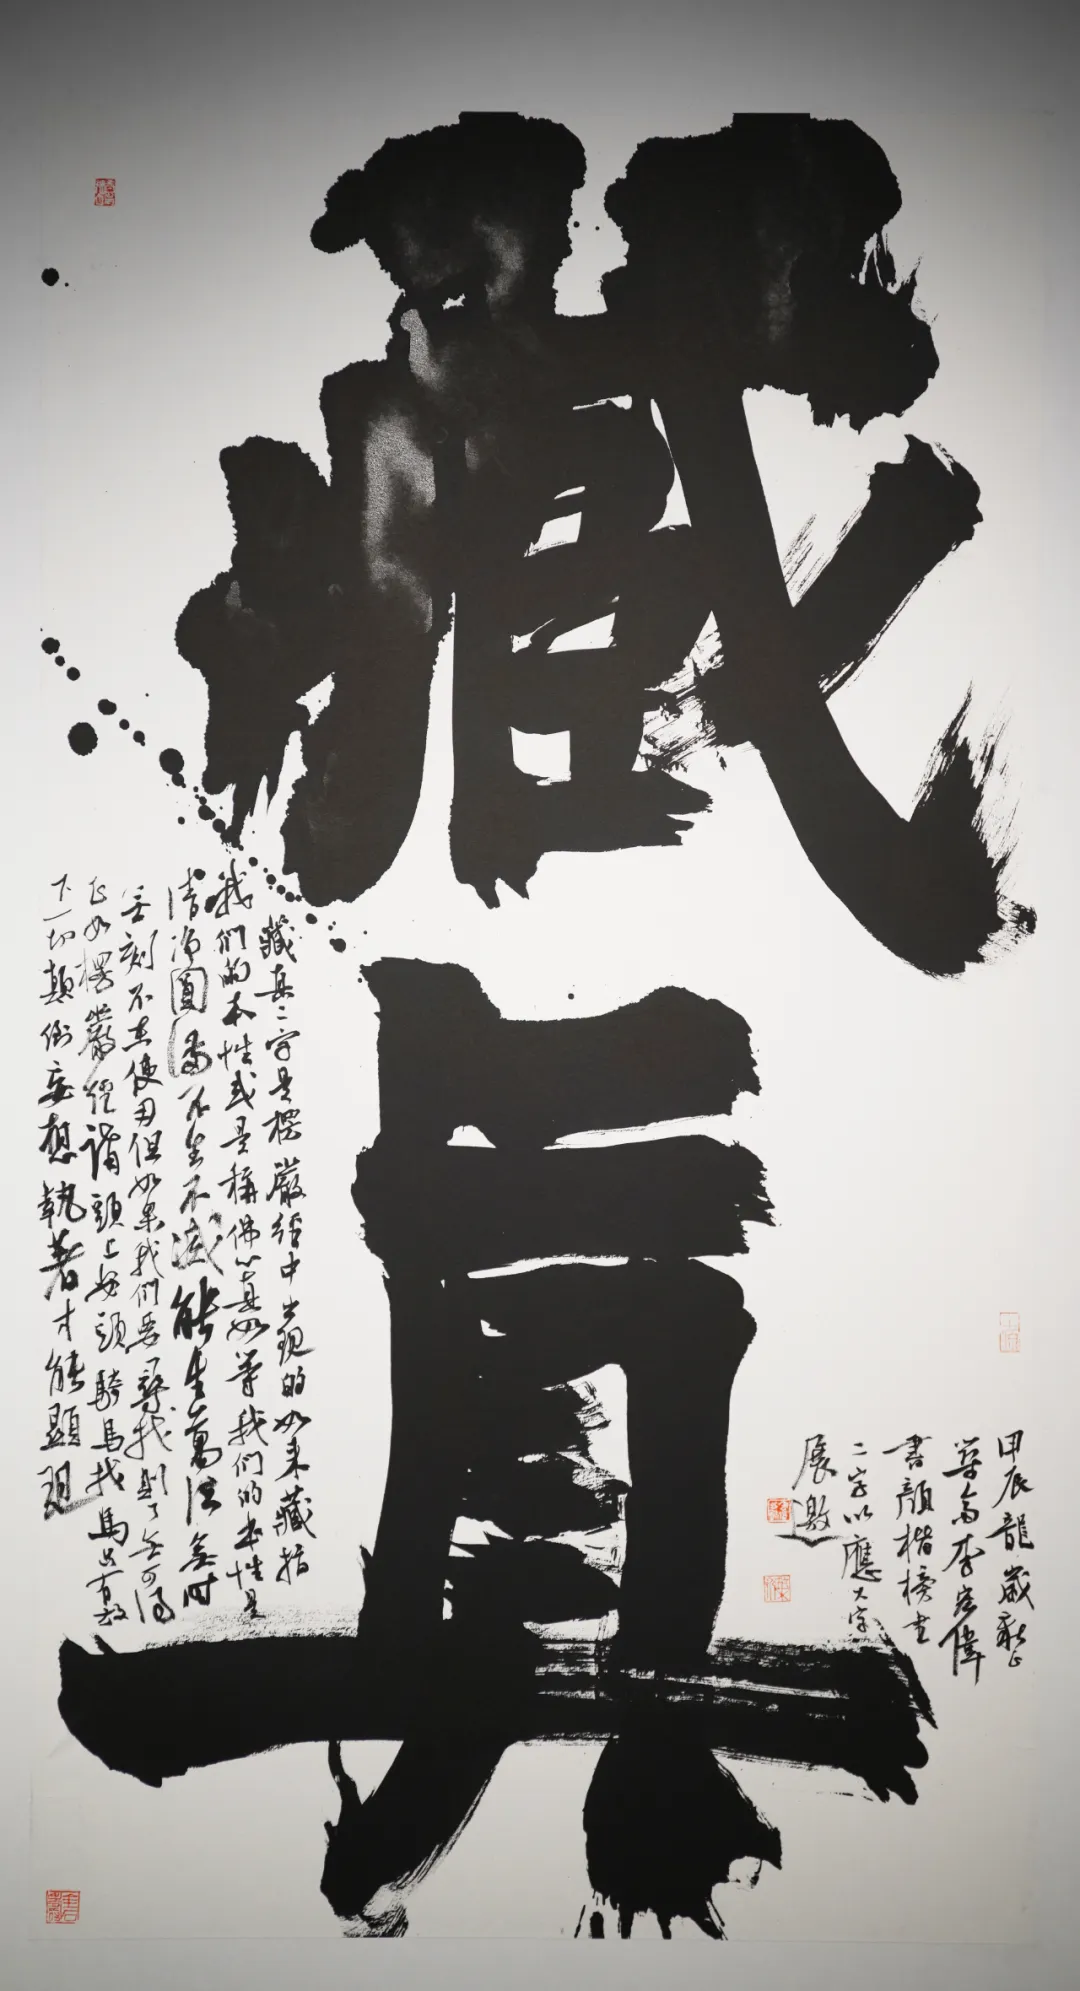 藏真
藏真二字是楞嚴經中出現的如来藏指
我們的本性或是稱佛心真如等我們的本性是
清净圓滿不生不滅能生萬法無時
無刻不在使用但如果我們要尋找則了無可得
正如楞嚴經謂頭上安頭騎馬找馬只有放
下一切顛倒妄想執著才能顯現
甲辰龍歲新正
李宏偉
書顔楷榜書
二字以應大字
展邀